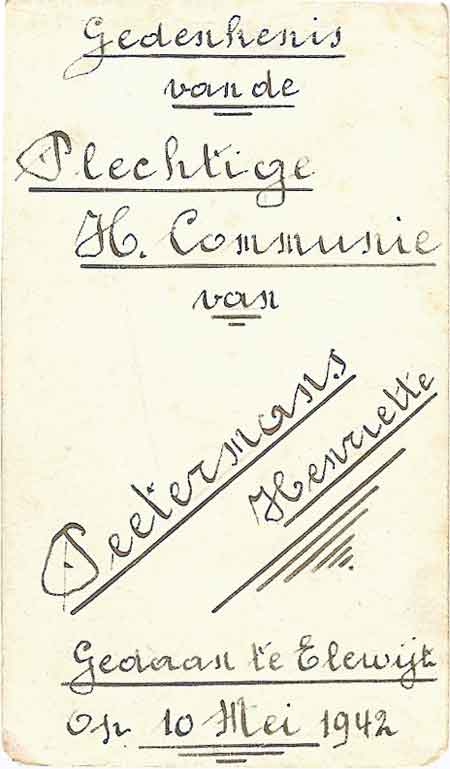 Gedenkenis
van de
Plechtige
H. Communie
van
Peetermans
Henriette
Gedaan te Elewijt
Op 10 Mei 1942